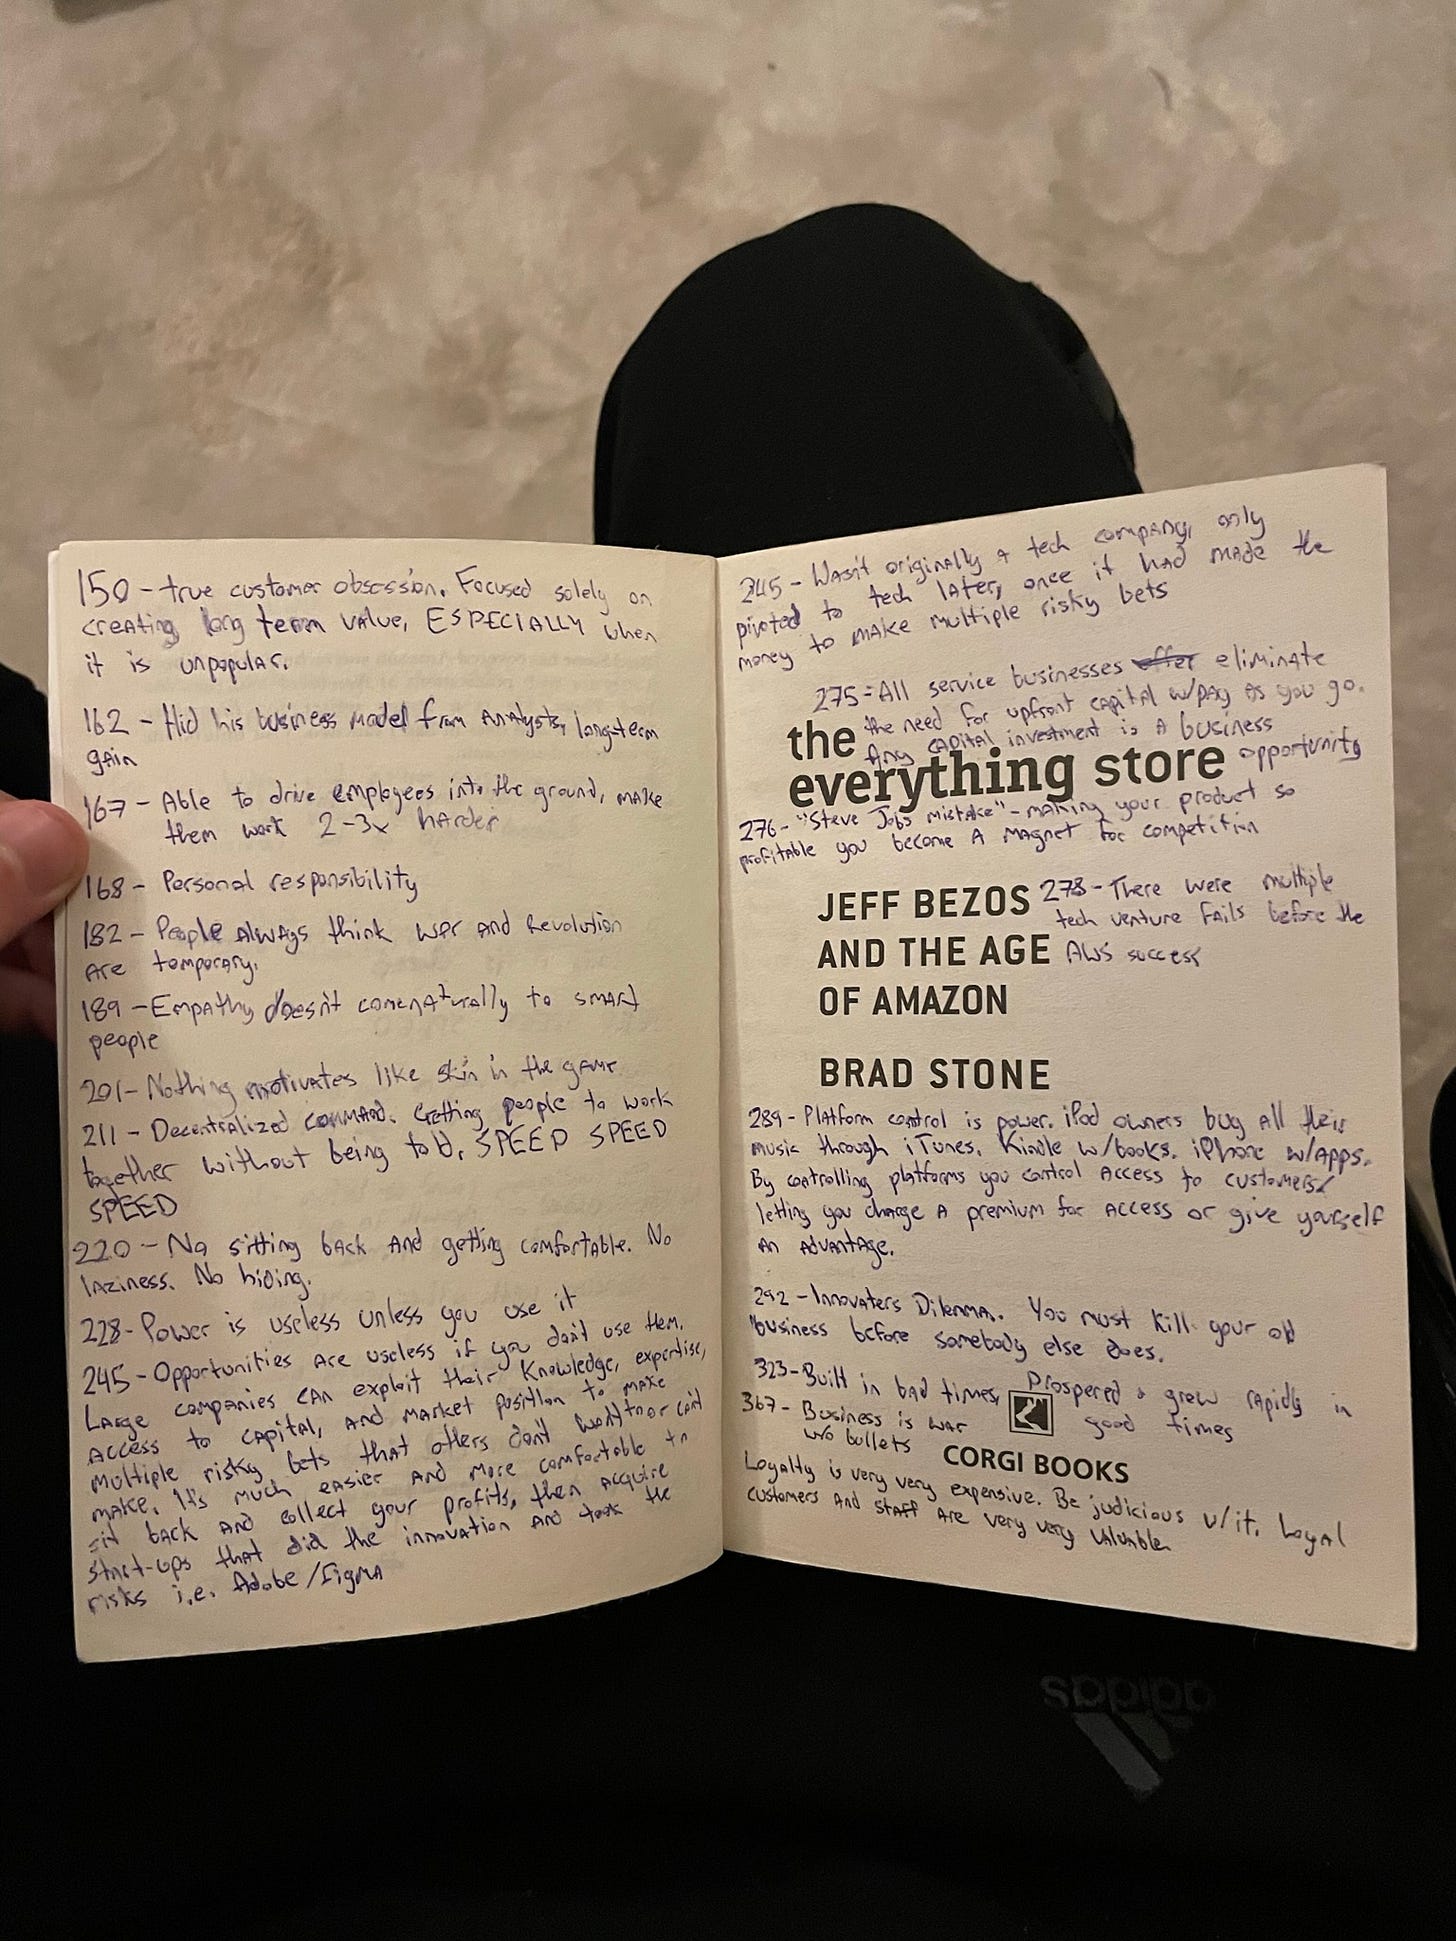 150 - true customer obsession. Focused solely on
creating long term value, ESPECIALLY when
it is unpopular.
162 - Hid his business model from analysts, long-term
gain
167 - Able to drive employees into the ground, make
them work 2-3x harder
168 - Personal responsibility
182 - People always think war and Revolution
are temporary.
189 - Empathy doesn't come naturally to smart
people
201 - Nothing motivates like skin in the game
211 - Decentralized command. Getting people to work
together without being told. SPEED SPEED
SPEED
220 - No sitting back and getting comfortable. No
laziness. No hiding.
228 - Power is useless unless you use it
245 - Opportunities are useless if you don't use them.
Large companies can exploit their knowledge, expertise,
access to capital, and market position to make
multiple risky bets that others don't want to or can't
make. It's much easier and more comfortable to
sit back and collect your profits, then acquire
start-ups that did the innovation and took the
risks i.e. Adobe/Figma
245 - Wasn't originally a tech company, only
pivoted to tech later, once it had made the
money to make multiple risky bets
275 - All service businesses offer eliminate
the need for upfront capital w/pay as you go.
Any capital investment is a business
opportunity
the
everything store
276 - "Steve Jobs mistake" - making your product so
profitable you become a magnet for competition
JEFF BEZOS
AND THE AGE
OF AMAZON
278 - There were multiple
tech venture fails before the
AWS success
BRAD STONE
289 - Platform control is power. iPod owners bug all their
music through iTunes. Kindle w/books. iPhone w/apps.
By controlling platforms you control access to customers
letting you charge a premium for access or give yourself
an advantage.
292 - Innovaters Dilemma. You must kill your old
business before somebody else does.
323 - Built in bad times, prospered & grew rapidly in
good times
367 - Business is war
w/o bullets
CORGI BOOKS
Loyalty is very very expensive. Be judicious w/it. Loyal
customers and staff are very very valuable
adidas